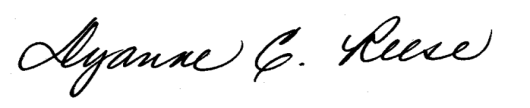 Dyanne C. Reese